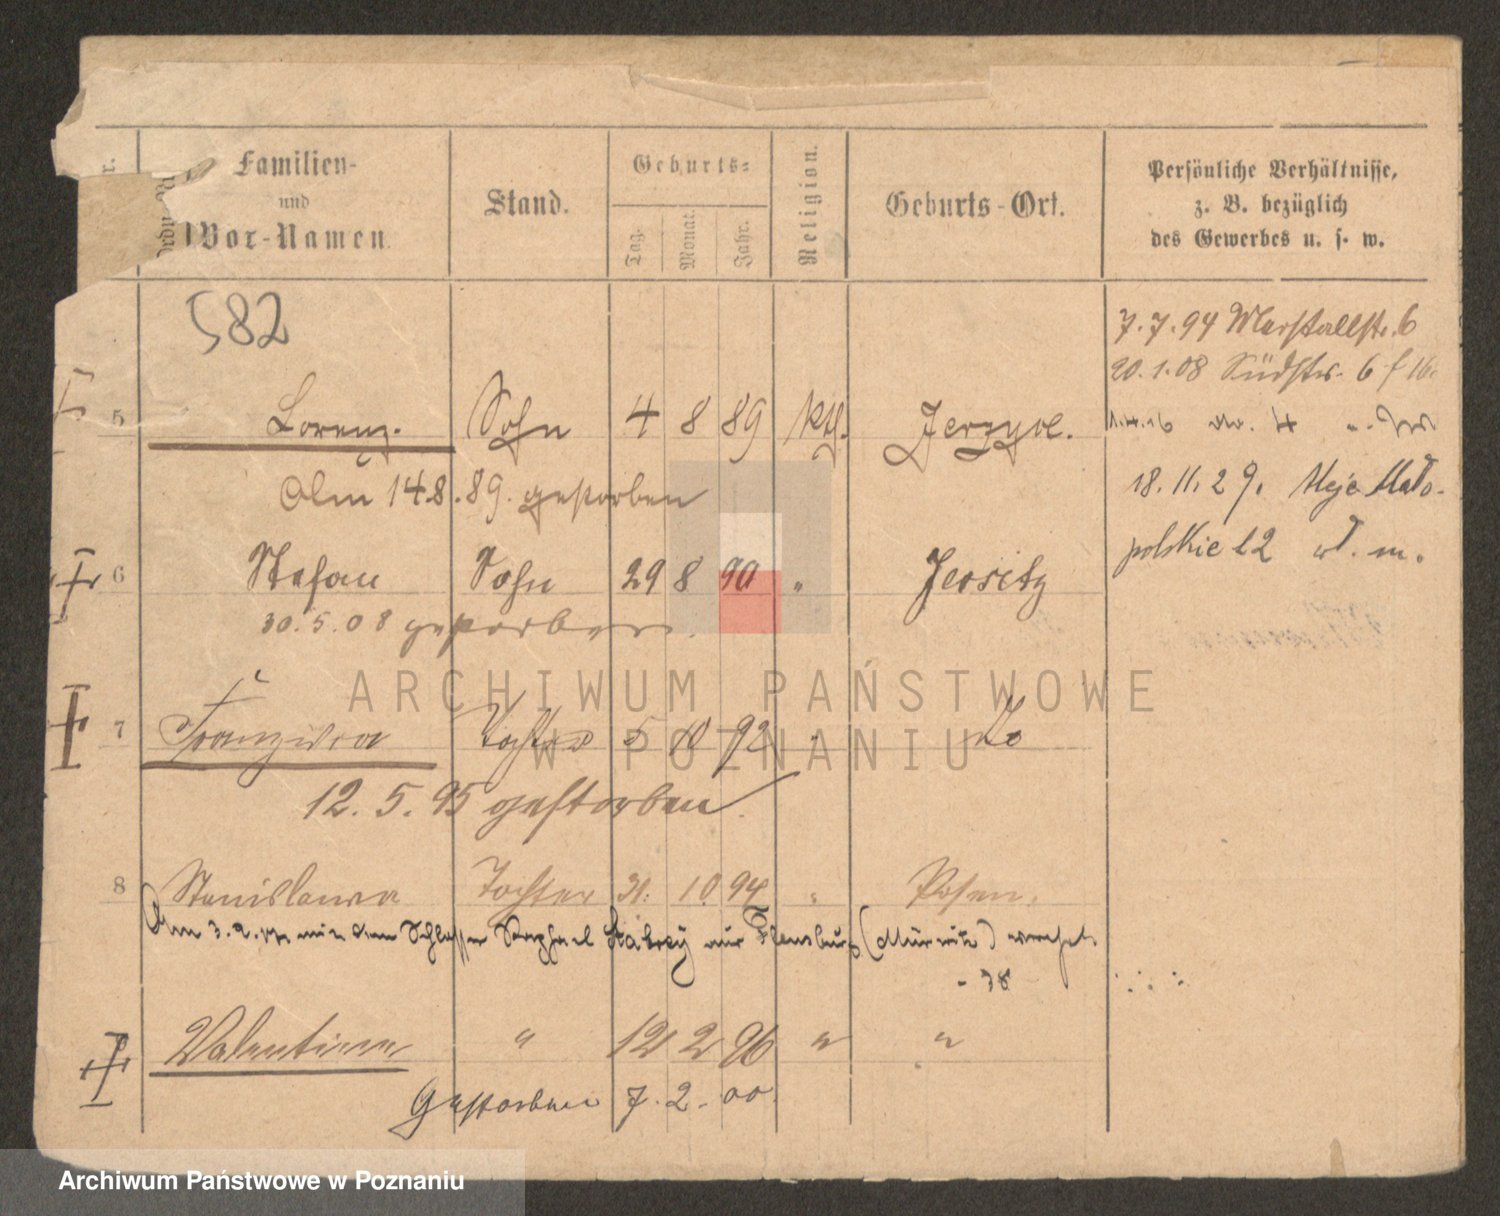 Familien- und Vor-Namen.
Stand.
Geburts-
Tag. Monat. Jahr.
Religion.
Geburts-Ort.
Persönliche Verhältnisse,
z. B. bezüglich
des Gewerbes u. s. w.
582
7.7.94 Marstallstr. 6
20.1.08 Südstr. 6
5 Lorenz. Sohn 4 8 89 kth. Jerzyce.
Am 14.8.89. gestorben
18.11.29. Aleje Mało-
polskie 12
6 Stefan Sohn 29 8 90 " Jersitz
30.5.08 gestorben.
ARCHIWUM PAŃSTWOWE
W POZNANIU
7 Franziska Tochter 5 10 92 "
12.5.95 gestorben
8 Stanislawa Tochter 31. 10. 94 " Posen.
Am mit dem Schlosser Raphael aus Flensburg
- 38
Valentine " 12 2 96 " "
Gestorben 7. 2. 00.
Archiwum Państwowe w Poznaniu